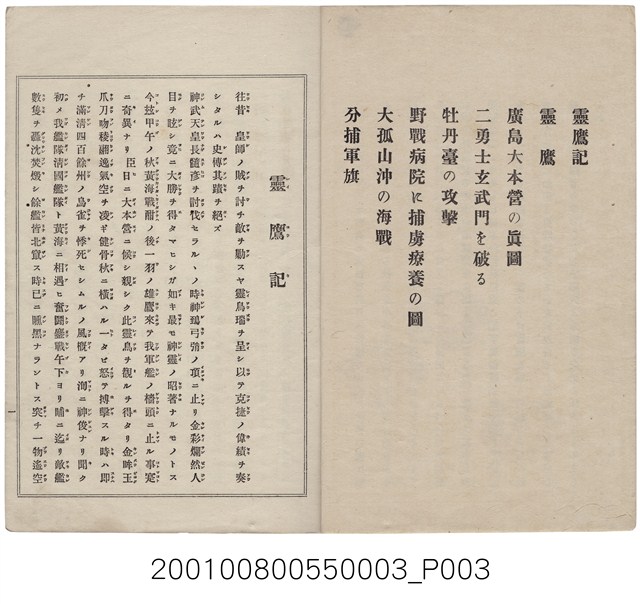 靈鷹記
靈鷹
廣島大本營の眞圖
二勇士玄武門を破る
牡丹臺の攻擊
野戰病院に捕虜療養の圖
大孤山沖の海戰
分捕軍旗
靈鷹記
往昔　皇師ノ賊ヲ討チ敵ヲ勦スヤ靈鳥瑞ヲ呈シ以テ克捷ノ偉績ヲ奏
シタルハ史傳其蹟ヲ絕ズ
神武天皇長髄彥ヲ討伐セラルヽノ時神鵄弓弰ノ項ニ止リ金彩爛然人
目ヲ眩シ竟ニ大勝ヲ得タマヒシガ如キ最モ神靈ノ昭著ナルモノトス
今玆甲午ノ秋黃海戰酣ノ後一羽ノ雄鷹來テ我軍艦ノ檣頭ニ止ル事寔
ニ奇異ナリ臣日ニ大本營ニ候シ親シク此靈鳥ヲ觀ルヲ得タリ金眸玉
爪刀吻稜翮逸氣空ヲ凌ギ健骨秋ニ橫ハル一タビ怒テ搏擊スル時ハ即
チ滿淸四百餘州ノ烏雀ヲ悸死セシムルノ風概アリ洵ニ神俊ナリ聞ク
初メ我艦隊淸國艦隊ト黃海ニ相遇ヒ奮鬪鏖戰午下ヨリ晡ニ迄リ敵艦
數隻ヲ轟沈焚燬シ餘艦皆北竄ス時已ニ曛黑ナラントス突チ一物遙空
一
200100800550003_P003